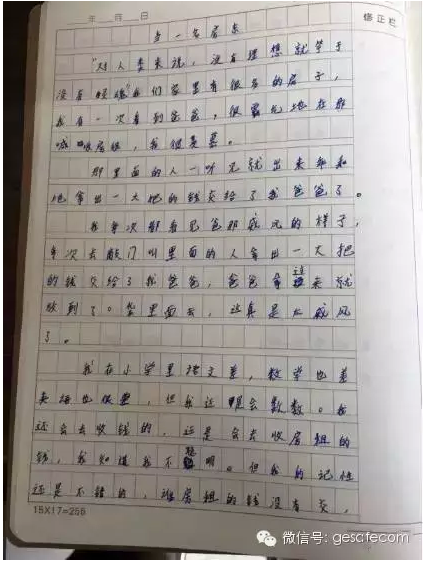 年 月 日
修正栏
当一名房东
"对人类来说,没有理想就等于
没有灵魂"我们家里有很多的房子,
我有一次看到爸爸,很霸气地在那
喊收房租,我很羡慕。
那里面的人一听见就出来乖乖
地拿出一大把的钱交给了我爸爸了。
我每次都看见爸那威风的样子,
每次去敲门叫里面的人拿出一大把
的钱交给了我爸爸,爸爸拿过来就
放到了 里面去,这真是太威风
了。
我在小学里语文差,数学也差
英语也很差,但我还是会数数。我
还会去收钱的,还是会去收房租的
钱,我知道我不聪明。但我的记性
还是不错的,谁房租的钱没有交,
15X17=255
微信号: gescfecom